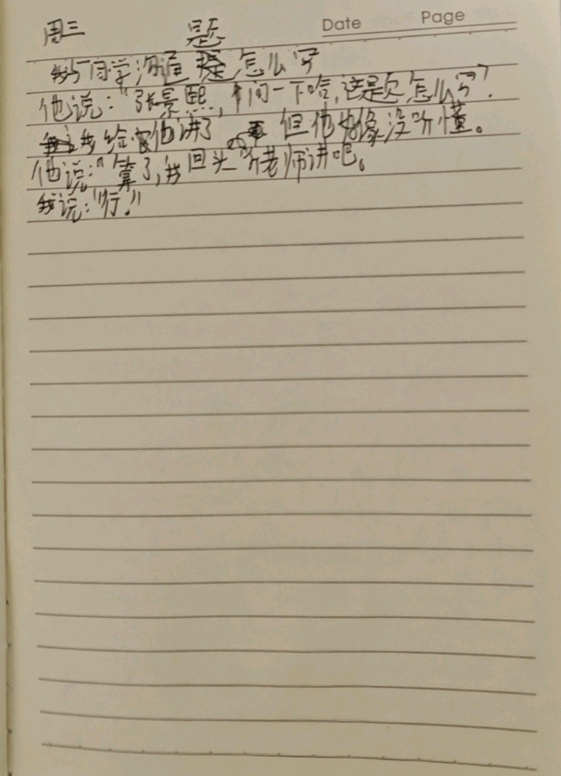 周三 题
Date Page
我与同学沟通题怎么写
他说:“张景熙,问一下哈,这是题怎么写?
我给他讲了 但他好像没听懂。
他说:“算了,我回头听老师讲吧。
我说:“行!”